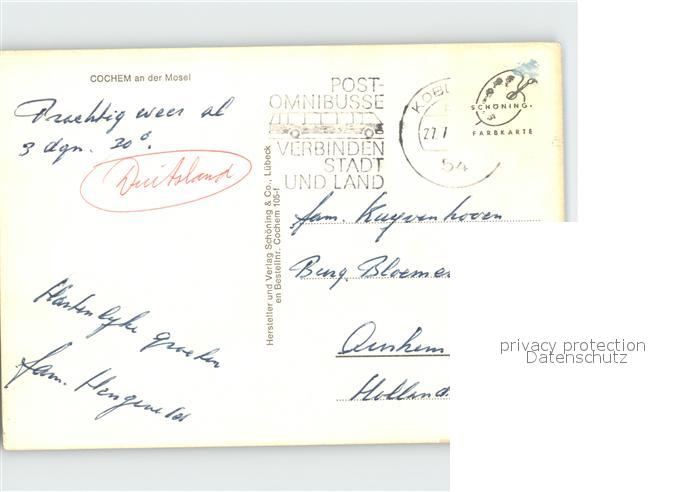 COCHEM an der Mosel
Prachtig weer al
3 dgn. 30°.
Duitsland
Hartelijke groeten
fam.
Hersteller und Verlag Schöning & Co., Lübeck
en Bestellnr. Cochem 105-f
POST-
OMNIBUSSE
VERBINDEN
STADT
UND LAND
KOB
27.7
54
SCHÖNING
FARBKARTE
fam. Kuyvenhoven
Burg. Bloemer
Arnhem
Holland
privacy protection
Datenschutz